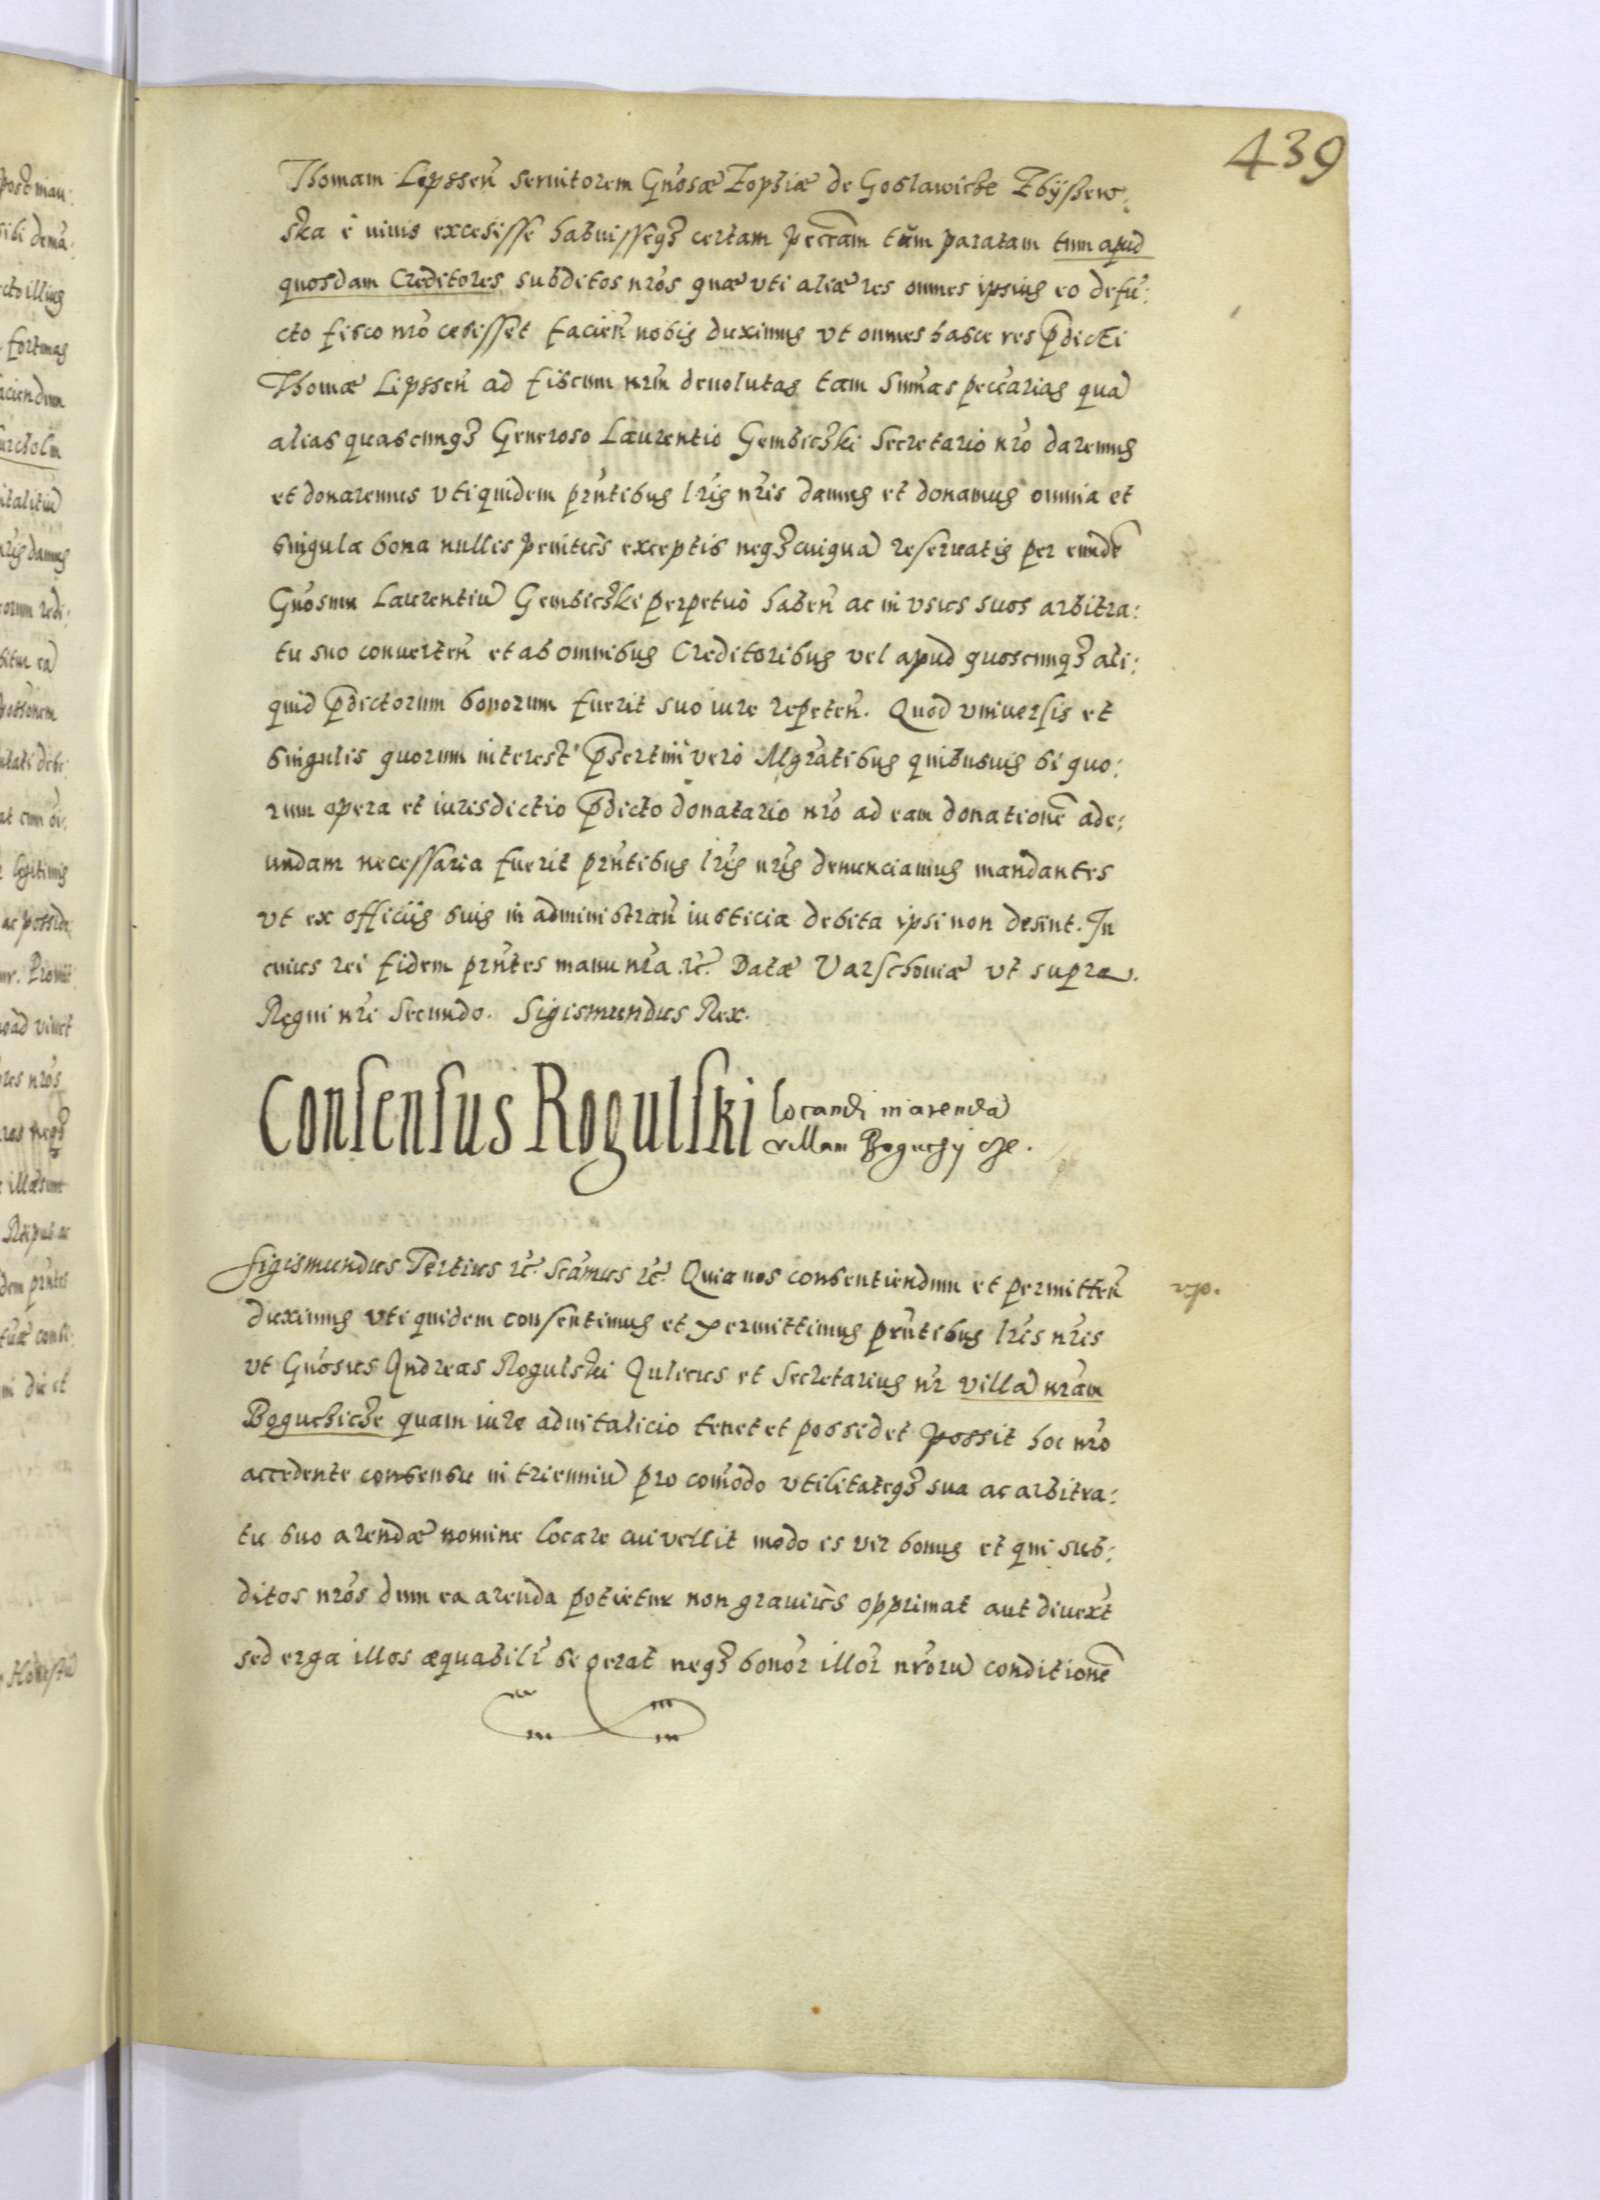 439
Thomam Lipssen̄ seruitorem Gn̄osæ Zophiæ de Goslawicze Zbÿssew:
ska è uiuis excesisse habuissegз certam pecc̄am tum paratam tum apud
quosdam Creditores subditos nr̄os quæ uti aliæ res omnes ipsius eo defū:
cto fisco nr̄o cesisset facien̄ nobis duximus vt omnes hasce res p̄dicti
Thomæ Lipssen̄ ad fiscum nrm̄ deuolutas tam sum̄as pecc̄arias quā
alias quascunqз Generoso Laurentio Gembiczki Secretario nr̄o daremus
et donaremus vti quidem prn̄tibus lr̄is nr̄is damus et donamus omnia et
singula bona nullis penitus exceptis neqз cuiquā reseruatis per eundē
Gn̄osum Laurentiū Gembiczki perpetuò haben̄ ac in vsus suos arbitra:
tu suo conuerten̄ et ab omnibus Creditoribus vel apud quoscunqз ali:
quid p̄dictorum bonorum fuerit suo iure repeten̄. Quod vniuersis et
singulis quorum interest p̄sertim̄ verò Mgr̄atibus quibusuis si quo:
rum opera et iurisdictio p̄dicto donatario nr̄o ad eam donationē ade:
undam necessaria fuerit prn̄tibus lr̄is nr̄is denunciamus mandantes
vt ex officiis suis in administran̄ iusticia debita ipsi non desint. In
cuius rei fidem prn̄tes manu nr̄a rc̄. Datæ Varschouiæ vt supra.
Regni nr̄i Secundo. Sigismundus Rex.
Consensus Rogulski locandi in arendā
villam Boguchÿ cze.
Sigismundus Tertius rc̄. Scām̄us rc̄. Quia nos consentiendum et permitten̄
duximus vti quidem consentimus et permittimus prn̄tibus lr̄is nr̄is
vt Gn̄osus Andreas Rogulski Aulicus et Secretarius nr̄ villā nr̄am
Boguchicze quam iure aduitalicio tenet et possidet possit hoc nr̄o
accedente consensu in trienniū pro com̄odo vtilitateqз sua ac arbitra:
tu suo arendæ nomine locare cui vellit modo is vir bonus et qui sub:
ditos nr̄os dum ea arenda potietur non grauius opprimat aut diuext̄
sed erga illos æquabilr̄ se gerat neqз bonor̄ illor̄ nr̄orū conditionē